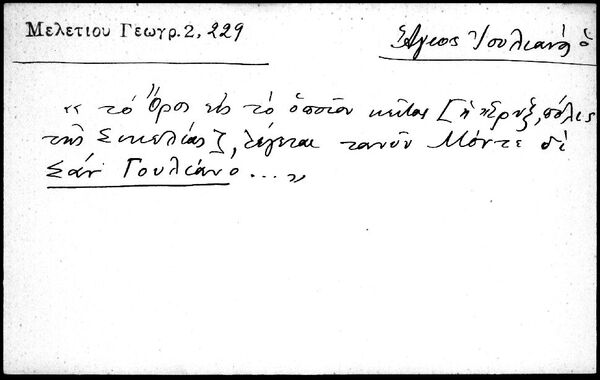 Μελετίου Γεωγρ. 2, 229
Ἅγιος Ἰουλιανός ὁ
« τὸ Ὄρος εἰς τὸ ὁποῖον κεῖται [ἡ Ἔρυξ, πόλις
τῆς Σικελίας], λέγεται τανῦν Μόντε δὶ
Σάν Γουλιάνο ... »